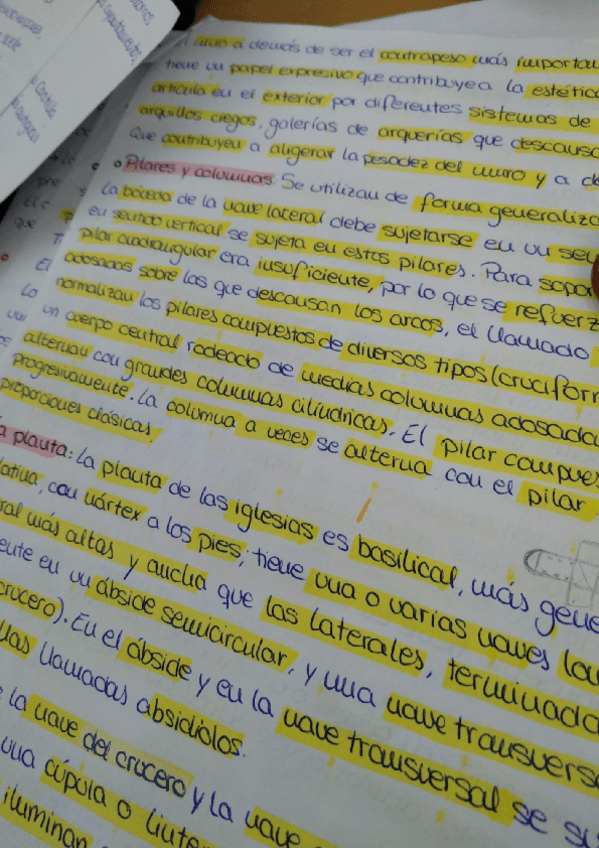 El muro además de ser el contrapeso más importan
tiene un papel expresivo que contribuye a la estética
articula en el exterior por diferentes sistemas de
arquillos ciegos, galerías de arquerías que descansa
que contribuyen a aligerar la pesadez del muro y a d
Pilares y columnas: Se utilizan de forma generaliza
La bóveda de la nave lateral debe sujetarse en un seu
en sentido vertical se sujeta en estos pilares. Para sopor
pilar cuadrangular era insuficiente, por lo que se refuerz
adosados sobre las que descansan los arcos, el llamado
normalizan los pilares compuestos de diversos tipos (cruciform
un cuerpo central rodeado de medias columnas adosada
alternan con grandes columnas cilíndricas. El pilar compues
progresivamente. La columna a veces se alterna con el pilar
proporciones clásicas.
a planta: La planta de las iglesias es basilical, más gene
latina, con nártex a los pies; tiene una o varias naves lon
ral más altas y ancha que las laterales, terminada
ente en un ábside semicircular, y una nave transvers
crucero). En el ábside y en la nave transversal se su
llamadas absidiolos.
la nave del crucero y la nave
una cúpula o linter
iluminan